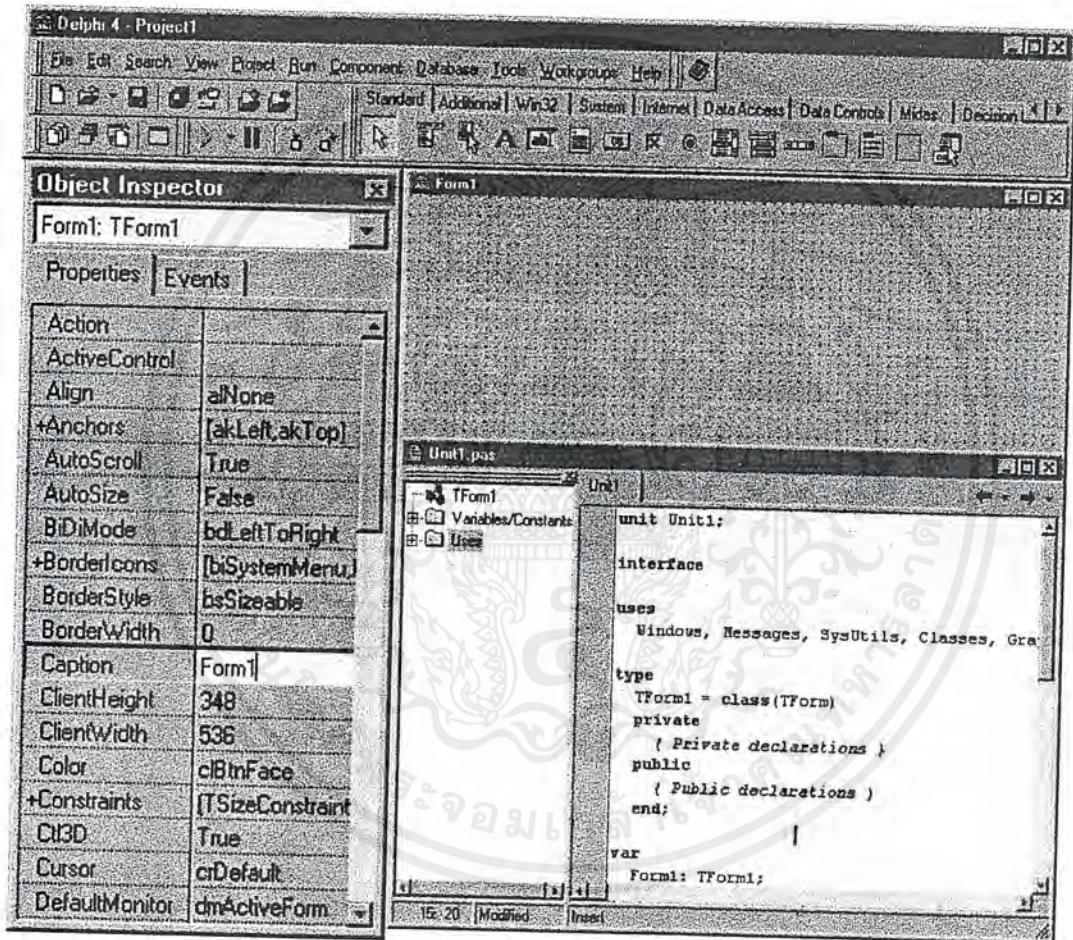 Delphi 4 - Project1
File Edit Search View Project Run Component Database Tools Workgroups Help
Standard Additional Win32 System Internet Data Access Data Controls Midas Decision
Object Inspector
Form1: TForm1
Properties Events
Action
ActiveControl
Align alNone
+Anchors [akLeft,akTop]
AutoScroll True
AutoSize False
BiDiMode bdLeftToRight
+BorderIcons [biSystemMenu,
BorderStyle bsSizeable
BorderWidth 0
Caption Form1
ClientHeight 348
ClientWidth 536
Color clBtnFace
+Constraints [TSizeConstraint
Ctl3D True
Cursor crDefault
DefaultMonitor dmActiveForm
Form1
Unit1.pas
TForm1
Variables/Constants
Uses
Unit1
unit Unit1;
interface
uses
Windows, Messages, SysUtils, Classes, Gra
type
TForm1 = class(TForm)
private
{ Private declarations }
public
{ Public declarations }
end;
var
Form1: TForm1;
15: 20 Modified Insert